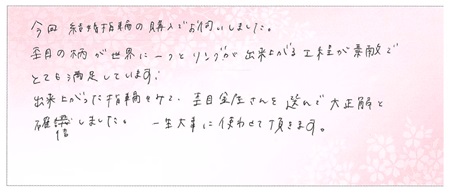 今回 結婚指輪の購入でお伺いしました。
杢目の柄が世界に一つとリングが出来上がる工程が素敵で
とても満足しています。
出来上がった指輪を見て、杢目金屋さんを選んで大正解と
確信しました。 一生大事に使わせて頂きます。